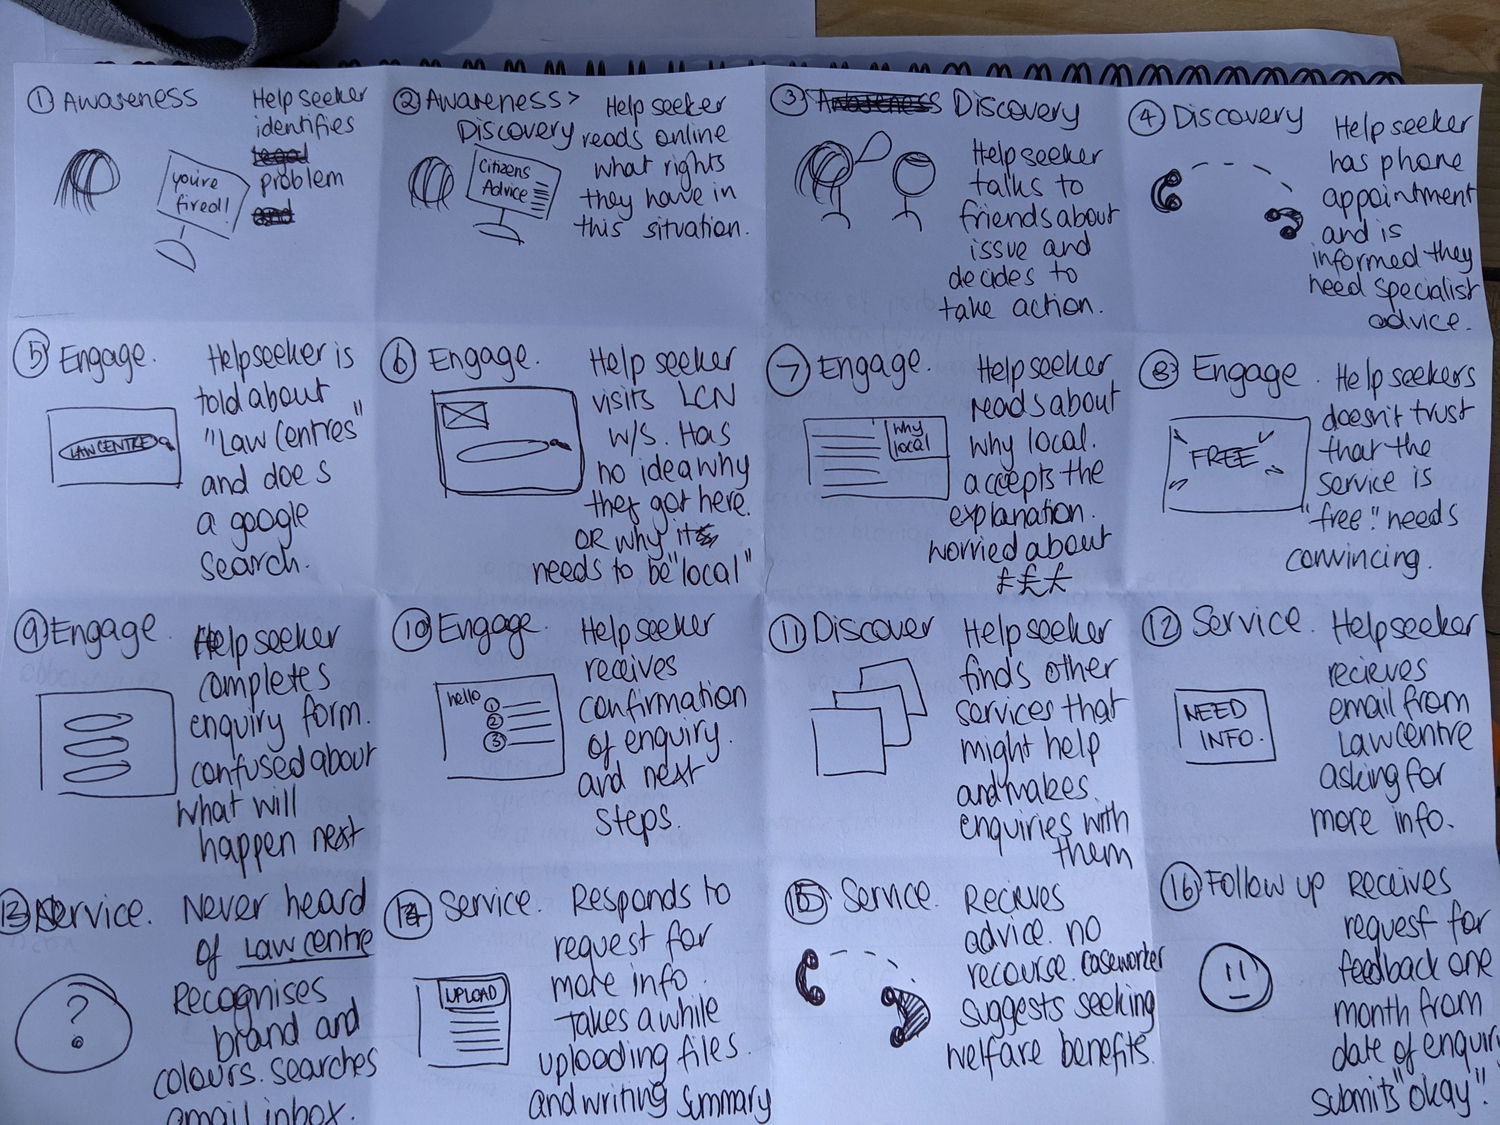 ① Awareness
Help seeker
identifies
problem
you're
fired!
② Awareness >
Discovery
Help seeker
reads online
what rights
they have in
this situation.
Citizens
Advice
③ Awareness Discovery
Help seeker
talks to
friends about
issue and
decides to
take action.
④ Discovery
Help seeker
has phone
appointment
and is
informed they
need specialist
advice.
⑤ Engage.
Helpseeker is
told about
"Law Centres"
and does
a google
search.
LAW CENTRE
⑥ Engage.
Help seeker
visits LCN
w/s. Has
no idea why
they got here.
OR why it
needs to be "local"
⑦ Engage.
Help seeker
reads about
why local.
accepts the
explanation.
worried about
£££
Why
local
⑧ Engage.
Help seekers
doesn't trust
that the
service is
"free." needs
convincing.
FREE
⑨ Engage.
Help seeker
completes
enquiry form.
confused about
what will
happen next
⑩ Engage.
Help seeker
receives
confirmation
of enquiry.
and next
steps.
hello
①
②
③
⑪ Discover
Help seeker
finds other
services that
might help
and makes
enquiries with
them
⑫ Service.
Helpseeker
recieves
email from
Lawcentre
asking for
more info.
NEED
INFO.
⑬ Service.
Never heard
of Law centre
Recognises
brand and
colours. searches
email inbox.
?
⑭ Service.
Responds to
request for
more info.
Takes a while
uploading files.
and writing summary
UPLOAD
⑮ Service.
Recieves
advice. no
recourse. caseworker
suggests seeking
welfare benefits.
⑯ Follow up
Receives
request for
feedback one
month from
date of enquiry
submits "okay"!